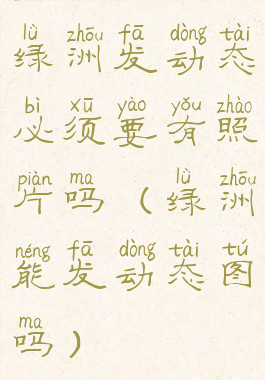 lǜ zhōu fā dòng tài
绿洲发动态
bì xū yào yǒu zhào
必须要有照
piàn ma lǜ zhōu
片吗（绿洲
néng fā dòng tài tú
能发动态图
ma
吗）